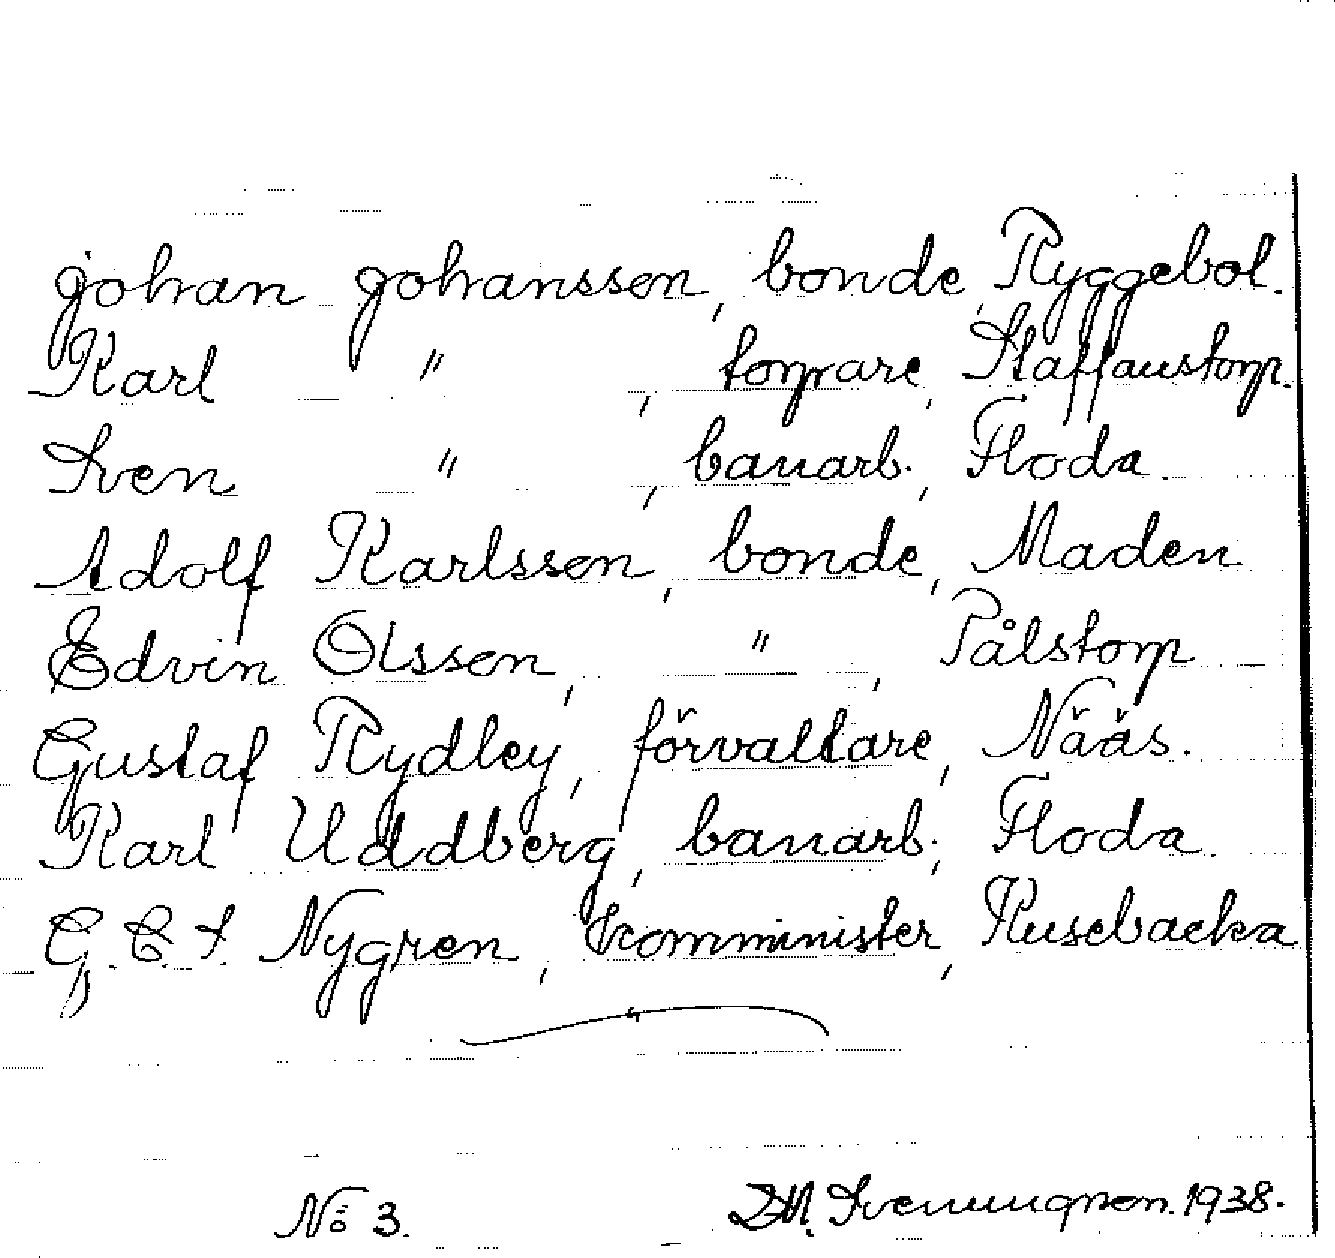 Johan Johansson, bonde, Ryggebol.
Karl " , torpare, Staffanstorp.
Sven " , banarb., Floda.
Adolf Karlsson, bonde, Maden
Edvin Olsson, " , Pålstorp
Gustaf Rydley, förvaltare, Nääs.
Karl Uddberg, banarb., Floda.
G. E. S. Nygren, komminister, Rusebacka
No 3. Sveningsson. 1938.